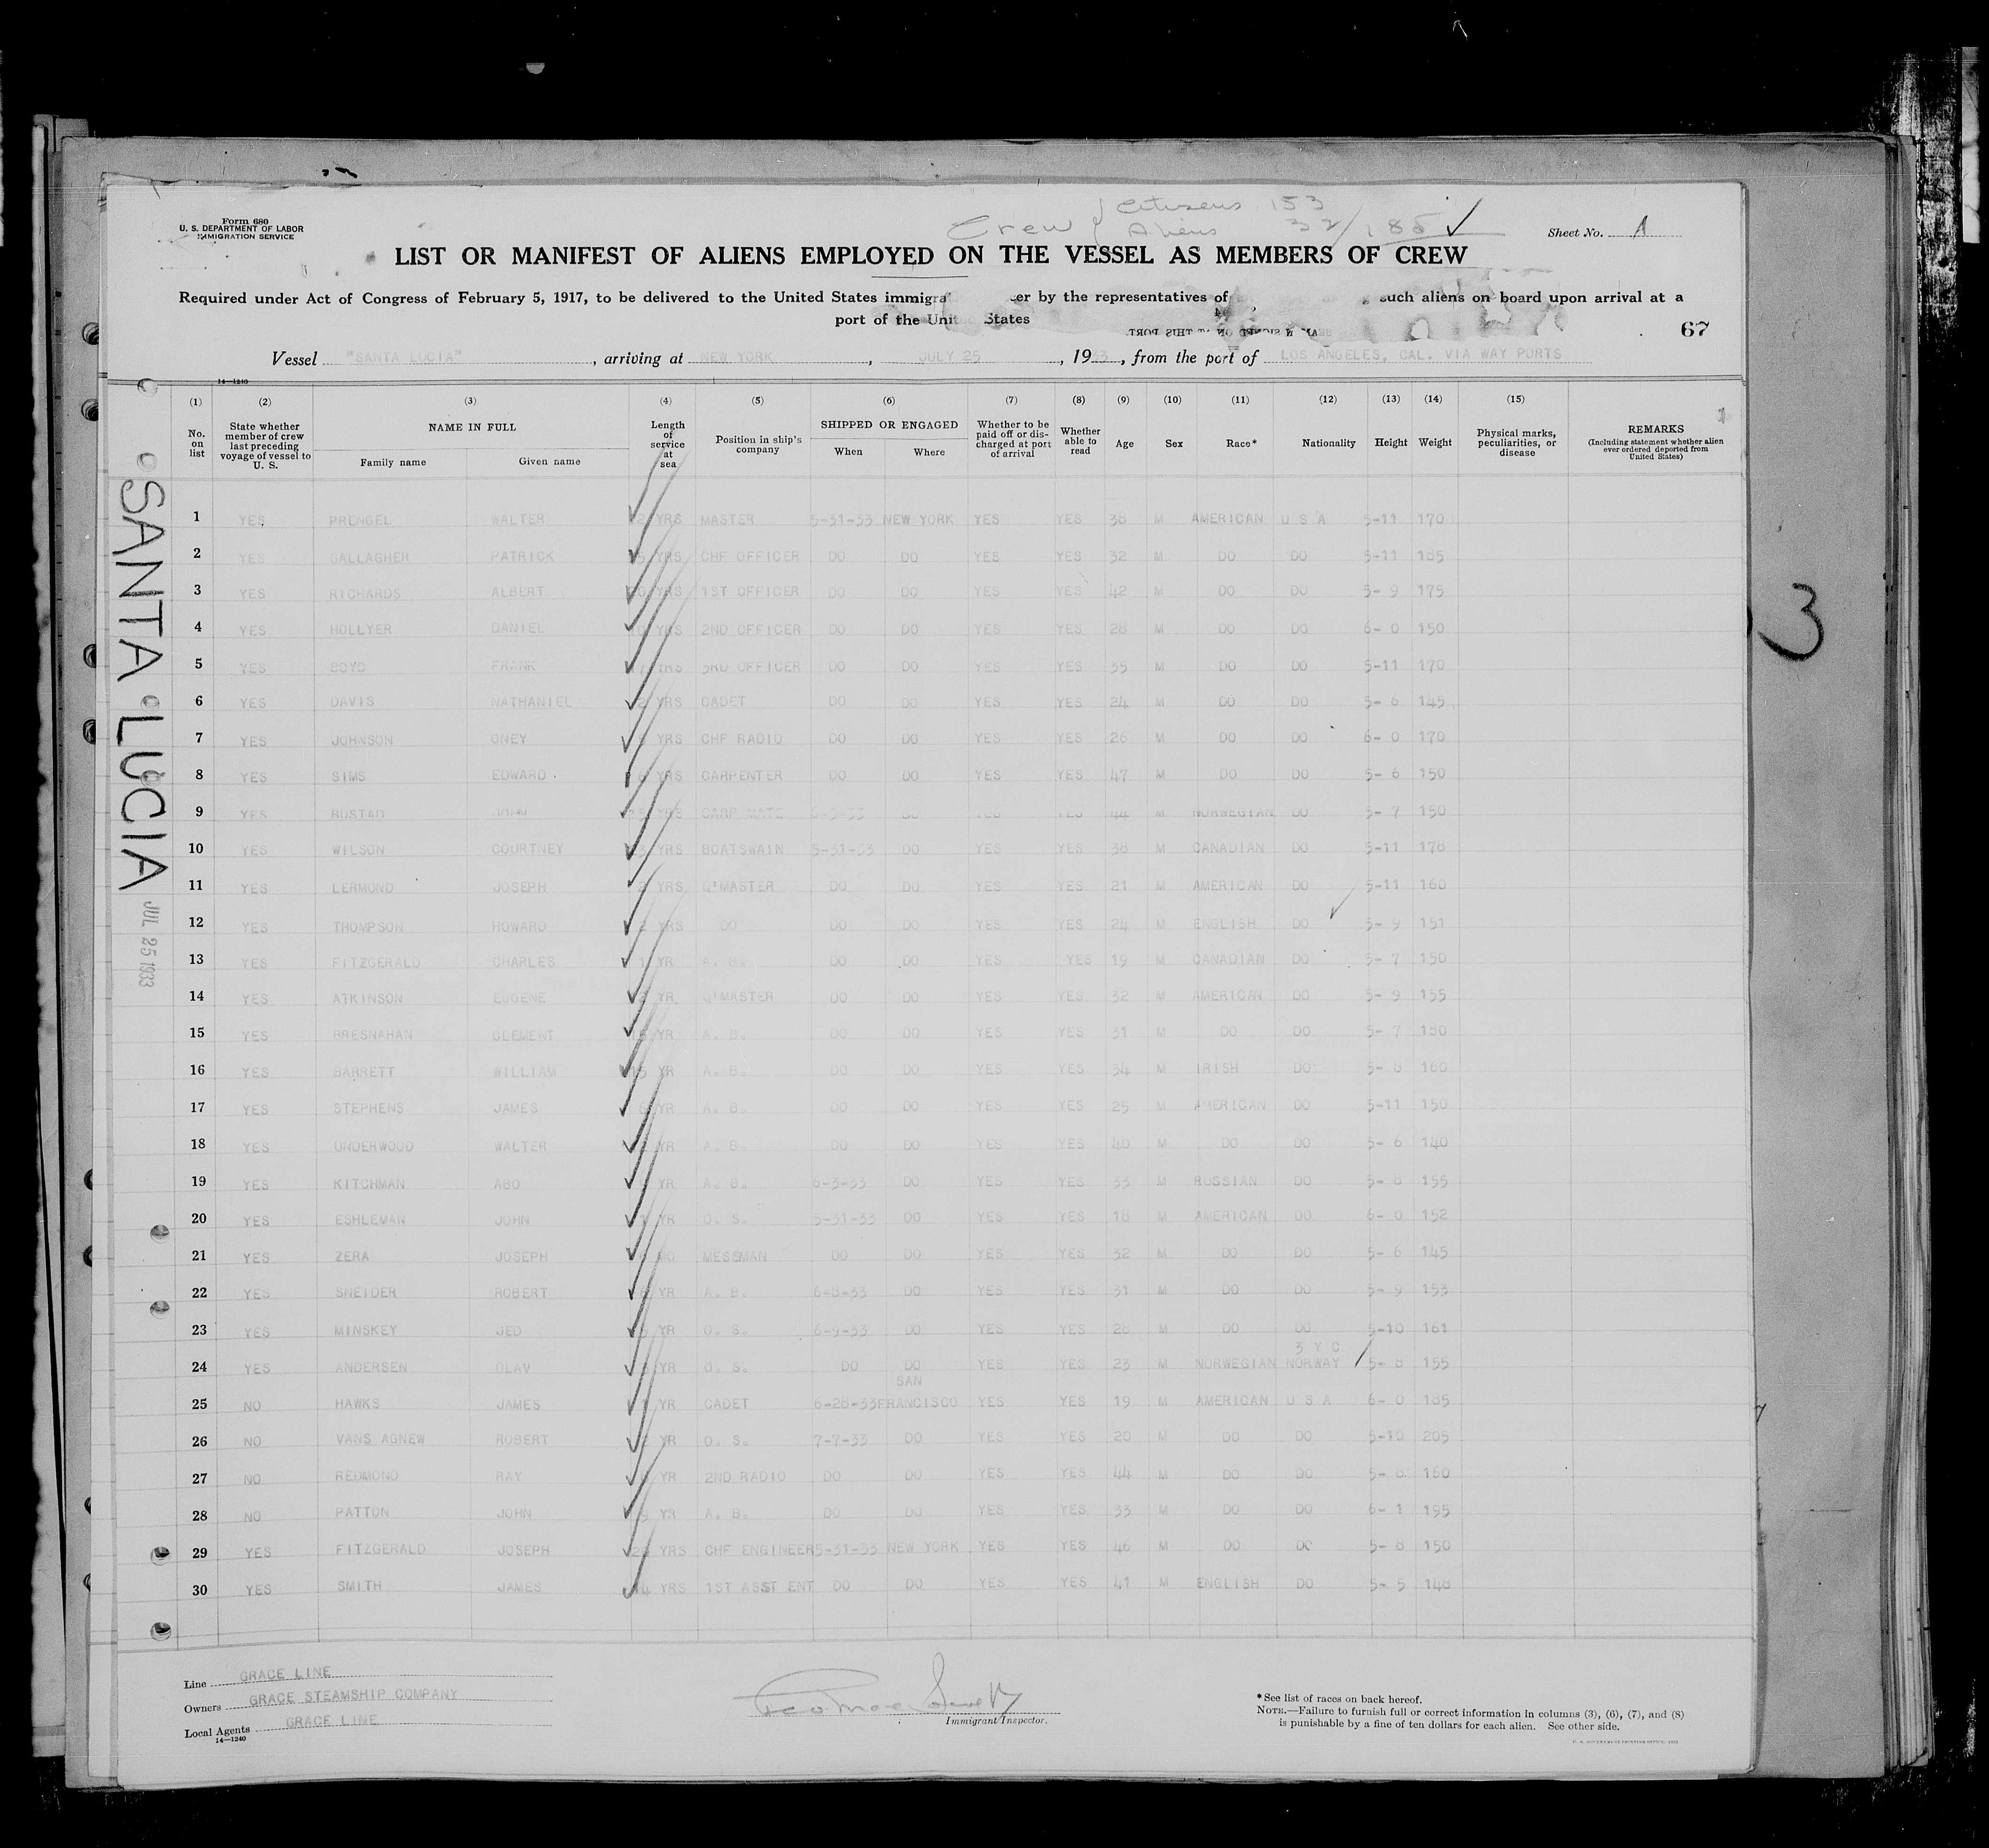 Form 680
U. S. DEPARTMENT OF LABOR
IMMIGRATION SERVICE
Crew { Citizens 153
Aliens 32 / 185 ✓
Sheet No. 1
LIST OR MANIFEST OF ALIENS EMPLOYED ON THE VESSEL AS MEMBERS OF CREW
Required under Act of Congress of February 5, 1917, to be delivered to the United States immigra er by the representatives of such aliens on board upon arrival at a
port of the United States
67
Vessel "SANTA LUCIA", arriving at NEW YORK, JULY 25, 1933, from the port of LOS ANGELES, CAL. VIA WAY PORTS
14—1240
(1) (2) (3) (4) (5) (6) (7) (8) (9) (10) (11) (12) (13) (14) (15)
No. on list | State whether member of crew last preceding voyage of vessel to U. S. | NAME IN FULL | Family name | Given name | Length of service at sea | Position in ship's company | SHIPPED OR ENGAGED | When | Where | Whether to be paid off or discharged at port of arrival | Whether able to read | Age | Sex | Race* | Nationality | Height | Weight | Physical marks, peculiarities, or disease | REMARKS (Including statement whether alien ever ordered deported from United States)
1 YES PRENGEL WALTER YRS MASTER 5-31-33 NEW YORK YES YES 38 M AMERICAN U S A 5-11 170
2 YES GALLAGHER PATRICK YRS CHF OFFICER DO DO YES YES 32 M DO DO 5-11 185
3 YES RICHARDS ALBERT YRS 1ST OFFICER DO DO YES YES 42 M DO DO 5- 9 175
4 YES HOLLYER DANIEL YRS 2ND OFFICER DO DO YES YES 28 M DO DO 6- 0 150
5 YES BOYD FRANK YRS 3RD OFFICER DO DO YES YES 35 M DO DO 5-11 170
6 YES DAVIS NATHANIEL 2 YRS CADET DO DO YES YES 24 M DO DO 5- 6 145
7 YES JOHNSON ONEY YRS CHF RADIO DO DO YES YES 26 M DO DO 6- 0 170
8 YES SIMS EDWARD YRS CARPENTER DO DO YES YES 47 M DO DO 5- 6 150
9 YES RUSTAD JOHN YRS CARP MATE 6-3-33 DO YES YES 44 M NORWEGIAN DO 5- 7 150
10 YES WILSON COURTNEY YRS BOATSWAIN 5-31-33 DO YES YES 38 M CANADIAN DO 5-11 178
11 YES LERMOND JOSEPH YRS Q'MASTER DO DO YES YES 21 M AMERICAN DO 5-11 160
12 YES THOMPSON HOWARD 2 YRS DO DO DO YES YES 24 M ENGLISH DO 5- 9 151
13 YES FITZGERALD CHARLES 1 YR A. B. DO DO YES YES 19 M CANADIAN DO 5- 7 150
14 YES ATKINSON EUGENE YR Q'MASTER DO DO YES YES 32 M AMERICAN DO 5- 9 155
15 YES BRESNAHAN CLEMENT YR A. B. DO DO YES YES 31 M DO DO 5- 7 180
16 YES BARRETT WILLIAM 15 YR A. B. DO DO YES YES 34 M IRISH DO 5- 8 160
17 YES STEPHENS JAMES YR A. B. DO DO YES YES 25 M AMERICAN DO 5-11 150
18 YES UNDERWOOD WALTER YR A. B. DO DO YES YES 40 M DO DO 5- 6 140
19 YES KITCHMAN ABO YR A. B. 6-3-33 DO YES YES 33 M RUSSIAN DO 5- 8 155
20 YES ESHLEMAN JOHN YR O. S. 5-31-33 DO YES YES 18 M AMERICAN DO 6- 0 152
21 YES ZERA JOSEPH MESSMAN DO DO YES YES 32 M DO DO 5- 6 145
22 YES SNEIDER ROBERT YR A. B. 6-8-33 DO YES YES 31 M DO DO 5- 9 153
23 YES MINSKEY JED YR O. S. 6-9-33 DO YES YES 28 M DO DO 5-10 161
3 Y C
24 YES ANDERSEN OLAV YR O. S. DO DO YES YES 23 M NORWEGIAN NORWAY 5- 8 155
SAN
25 NO HAWKS JAMES 1 YR CADET 6-28-33 FRANCISCO YES YES 19 M AMERICAN U S A 6- 0 185
26 NO VANS AGNEW ROBERT YR O. S. 7-7-33 DO YES YES 20 M DO DO 5-10 205
27 NO REDMOND RAY YR 2ND RADIO DO DO YES YES 44 M DO DO 5- 8 160
28 NO PATTON JOHN YR A. B. DO DO YES YES 33 M DO DO 6- 1 195
29 YES FITZGERALD JOSEPH YRS CHF ENGINEER 5-31-33 NEW YORK YES YES 46 M DO DO 5- 8 150
30 YES SMITH JAMES YRS 1ST ASST ENT DO DO YES YES 41 M ENGLISH DO 5- 5 148
SANTA LUCIA
JUL 25 1933
3
Line GRACE LINE
Owners GRACE STEAMSHIP COMPANY
Local Agents GRACE LINE
14—1240
Immigrant Inspector.
*See list of races on back hereof.
NOTE.—Failure to furnish full or correct information in columns (3), (6), (7), and (8)
is punishable by a fine of ten dollars for each alien. See other side.